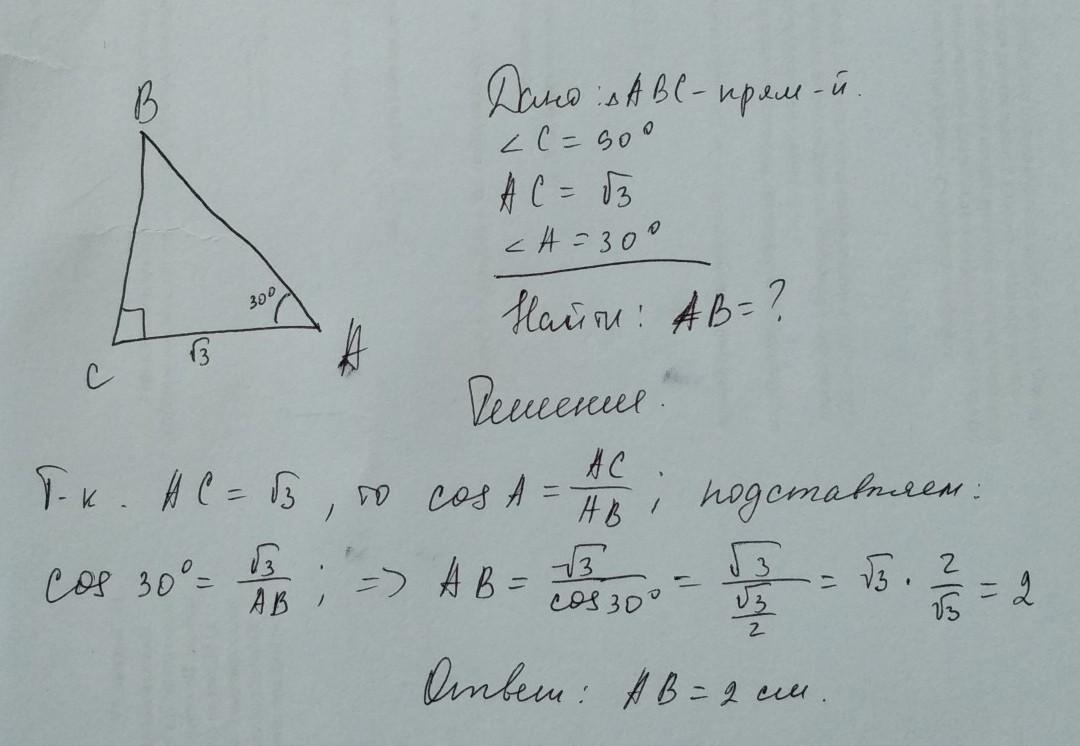 B
30°
√3
C
A
Дано: △ABC - прям-й.
∠C = 90°
AC = √3
∠A = 30°
Найти: AB = ?
Решение.
Т-к. AC = √3, то cos A = AC/AB; подставляем:
cos 30° = √3/AB; => AB = √3/cos30° = √3/(√3/2) = √3 · 2/√3 = 2
Ответ: AB = 2 см.